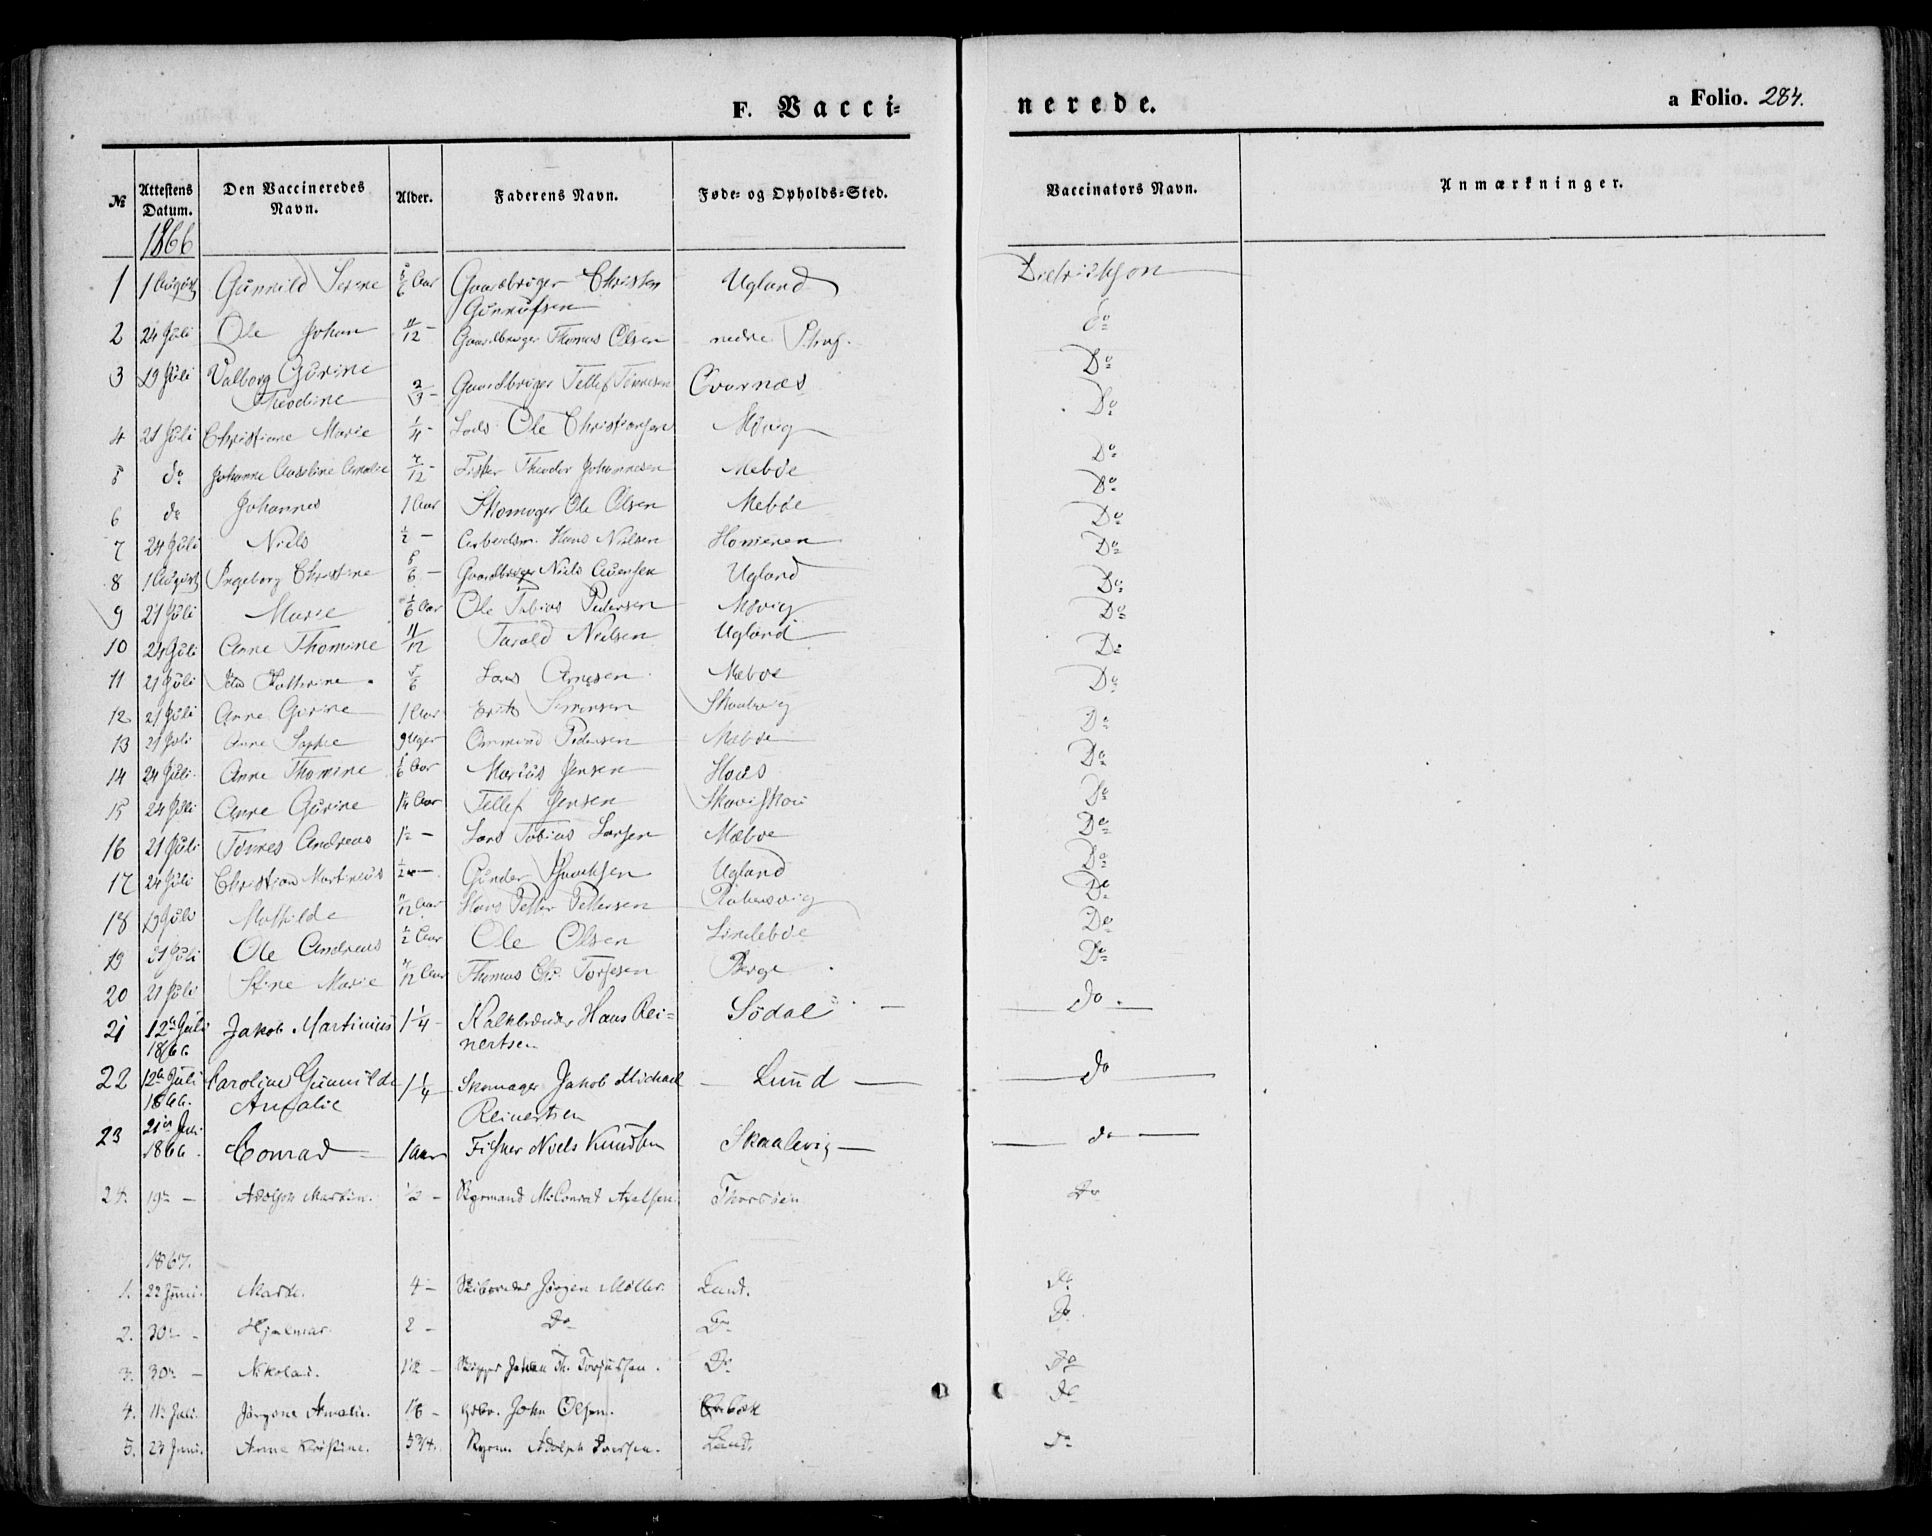 F. Vacci- nerede. a Folio. 284.
№ Attestens Datum. Den Vaccineredes Navn. Alder. Faderens Navn. Føde- og Opholds-Sted. Vaccinators Navn. Anmærkninger.
1866
1 1 August Gunnild Serine 5/6 Aar Gaardbruger Christen Ugland Didrikson
Gunnufsen
2 24 Juli Ole Johan 11/12 — Gaardbruger Thomas Olsen nedre do
3 19 Juli Valborg Gurine 2/3 — Gaardbruger Tellef Tønnesen Qvarnæs Do
Theodine
4 21 Juli Christiane Marie 1/4 — Lods Ole Christiansen Møvig Do
5 do Johanne Amalie 7/12 — Fisker Theodor Johannesen Mebøe Do
6 do Johannes 1 Aar Skomager Ole Olsen Mebøe Do
7 24 Juli Niels 1/2 — Arbeidsm. Hans Nielsen Do
8 1 August Ingeborg Christine 5/6 — Gaardbruger Niels Ugland Do
9 21 Juli Marie 1/6 Aar Ole Tobias Pedersen Møvig Do
10 24 Juli Anne Thomine 11/12 Tarald Nielsen Ugland Do
11 21 Juli Kathrine 5/6 Lars Arnesen Mæbøe Do
12 21 Juli Anne Gurine 1 Aar Sørensen Skaalevig Do
13 21 Juli Anne Sophie 9 Uger Ommund Pedersen Mæbøe Do
14 24 Juli Anne Thomine 5/6 Aar Marius Jensen Haus Do
15 24 Juli Anne Gurine 1 1/4 Aar Tellef Jensen Do
16 21 Juli Tønnes Andreas 1 1/2 — Lars Tobias Larsen Mæbøe Do
17 24 Juli Christian Martinius 1/2 — Gunder Ugland Do
18 19 Juli Mathilde 11/12 Aar Hans Petter Pettersen Do
19 21 Juli Ole Andreas 1/2 Aar Ole Olsen Lindebøe Do
20 21 Juli Stine Marie 11/12 Aar Thomas Chr. Torjesen Berge Do
21 12te Juli Jakob Martinius 1 1/4 — Kalkbrænder Hans Rei- Södal — do. —
1866 nertsen
22 12te Juli Caroline Gunnilde 1 1/4 Skomager Jakob Michael — Lund — — do —
1866. Amalie Reinertsen
23 21de Juli Conrad — 1 Aar Fisker Niels Knudsen Skaalevig — — do —
1866.
24. 19de — Adolph Martin. 1/2 — Styrmand M. Conrad Axelsen. Thorsøen Do
1867.
1. 22 Juni. Marie. 4 — Skibsreder Jørgen Møller. Lund. do
2. 30te — Hjalmar. 2 — Do Do D.
3. 30te — Nikolai. 1/2 — Skipper Johan Th. Torjussen. Do Do
4. 11te Juli. Jørgine Amalie. 1/6 — Gdbr. John Olsen. do
5. 23 Juni. Anne Kristine. 5 3/4. Styrm. Adolph Iversen. Lund. do